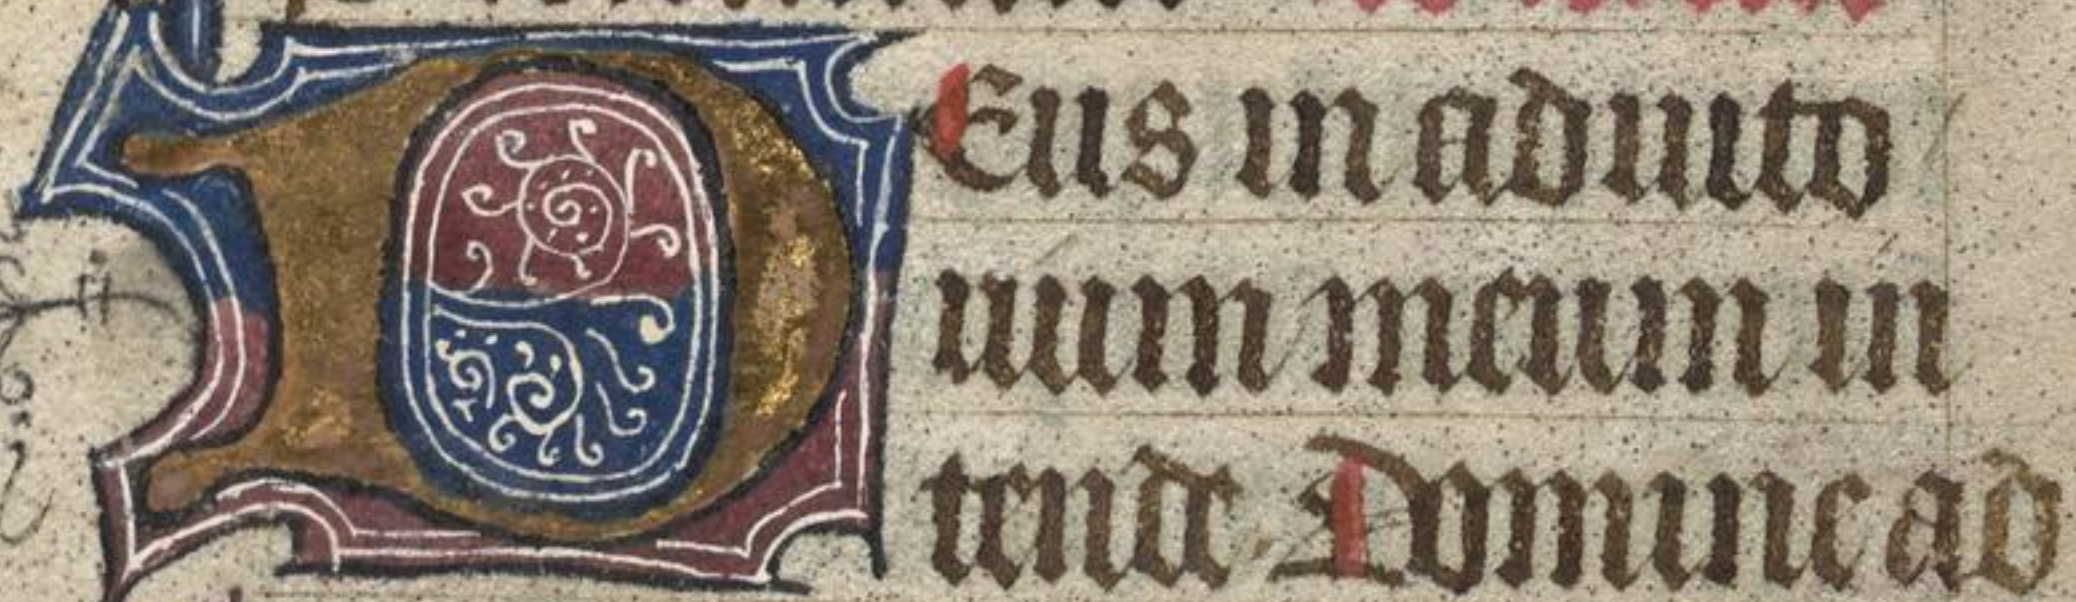 DEus in adiuto
rium meum in
tende. Domine ad